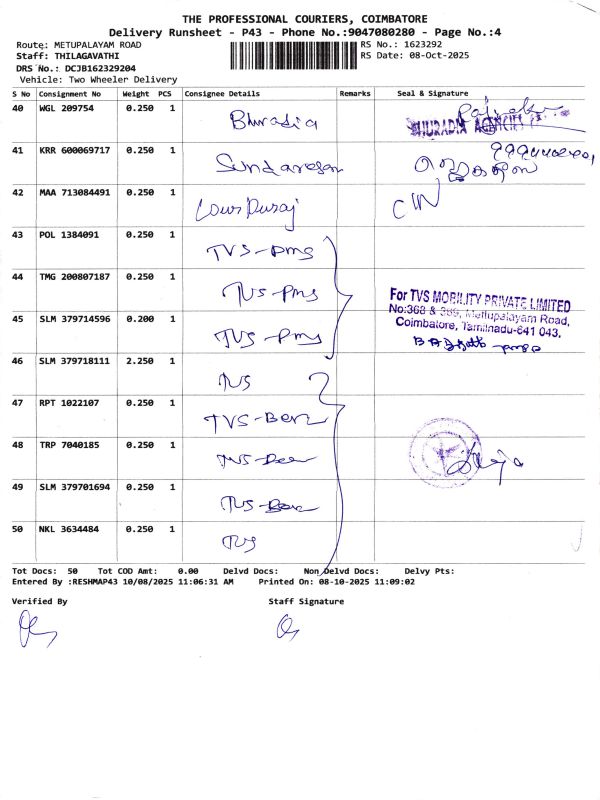 THE PROFESSIONAL COURIERS, COIMBATORE
Delivery Runsheet - P43 - Phone No.:9047080280 - Page No.:4
Route: METUPALAYAM ROAD RS No.: 1623292
Staff: THILAGAVATHI RS Date: 08-Oct-2025
DRS No.: DCJB162329204
Vehicle: Two Wheeler Delivery
S No Consignment No Weight PCS Consignee Details Remarks Seal & Signature
40 WGL 209754 0.250 1 Bhuradia BHURADIA AGENCIES
41 KRR 600069717 0.250 1 Sundaresan
42 MAA 713084491 0.250 1 CIN
43 POL 1384091 0.250 1 TVS-Pms
44 TMG 200807187 0.250 1 TVS-Pms
For TVS MOBILITY PRIVATE LIMITED
No:368 & 369, Mettupalayam Road,
45 SLM 379714596 0.200 1 TVS-Pms
Coimbatore, Tamilnadu-641 043.
46 SLM 379718111 2.250 1 TVS
47 RPT 1022107 0.250 1 TVS-Benz
48 TRP 7040185 0.250 1 TVS-
49 SLM 379701694 0.250 1 TVS-
50 NKL 3634484 0.250 1 TVS
Tot Docs: 50 Tot COD Amt: 0.00 Delvd Docs: Non Delvd Docs: Delvy Pts:
Entered By :RESHMAP43 10/08/2025 11:06:31 AM Printed On: 08-10-2025 11:09:02
Verified By Staff Signature